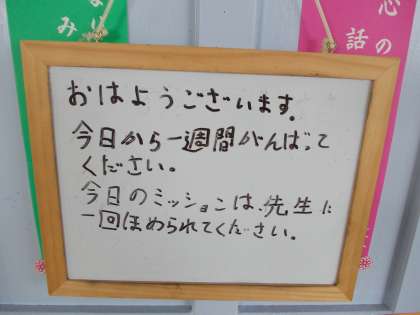 おはようございます。
今日から一週間がんばって
ください。
今日のミッションは、先生に
一回ほめられてください。
心の
話
み